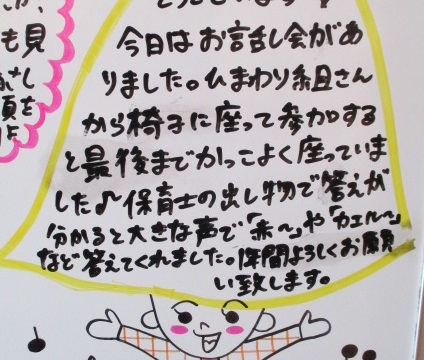 今日はお話し会があ
りました。ひまわり組さん
から椅子に座って参加する
と最後までかっこよく座っていま
した♪保育士の出し物で答えが
分かると大きな声で「赤〜」や「カエル〜」
など答えてくれました。隙間よろしくお願
い致します。
も見